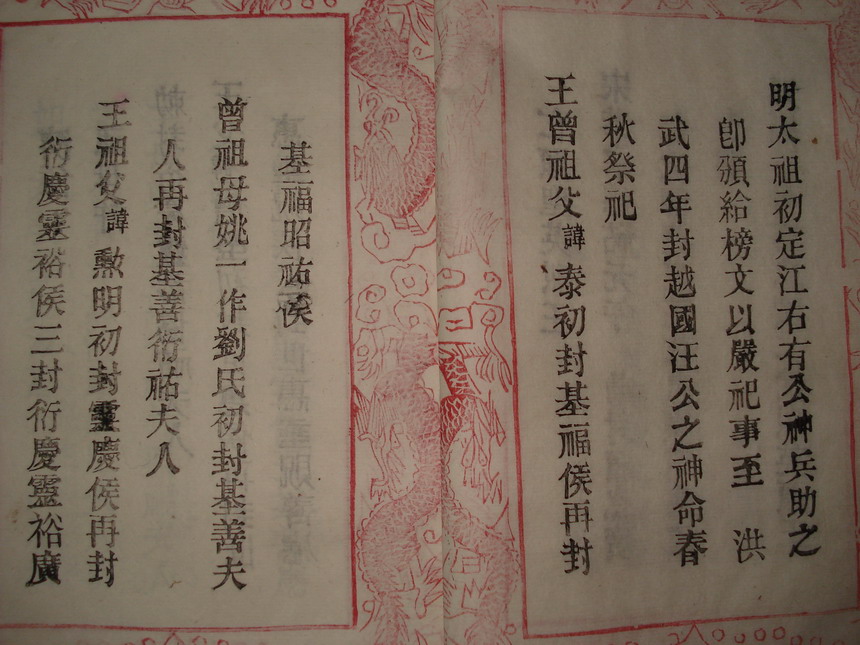 明太祖初定江右有公神兵助之
卽頒給榜文以嚴祀事至 洪
武四年封越國汪公之神命春
秋祭祀
王曾祖父諱 泰初封基福侯再封
基福昭祐侯
曾祖母姚一作劉氏初封基善夫
人再封基善衍祐夫人
王祖父諱 勲明初封靈慶侯再封
衍慶靈裕侯三封衍慶靈裕廣